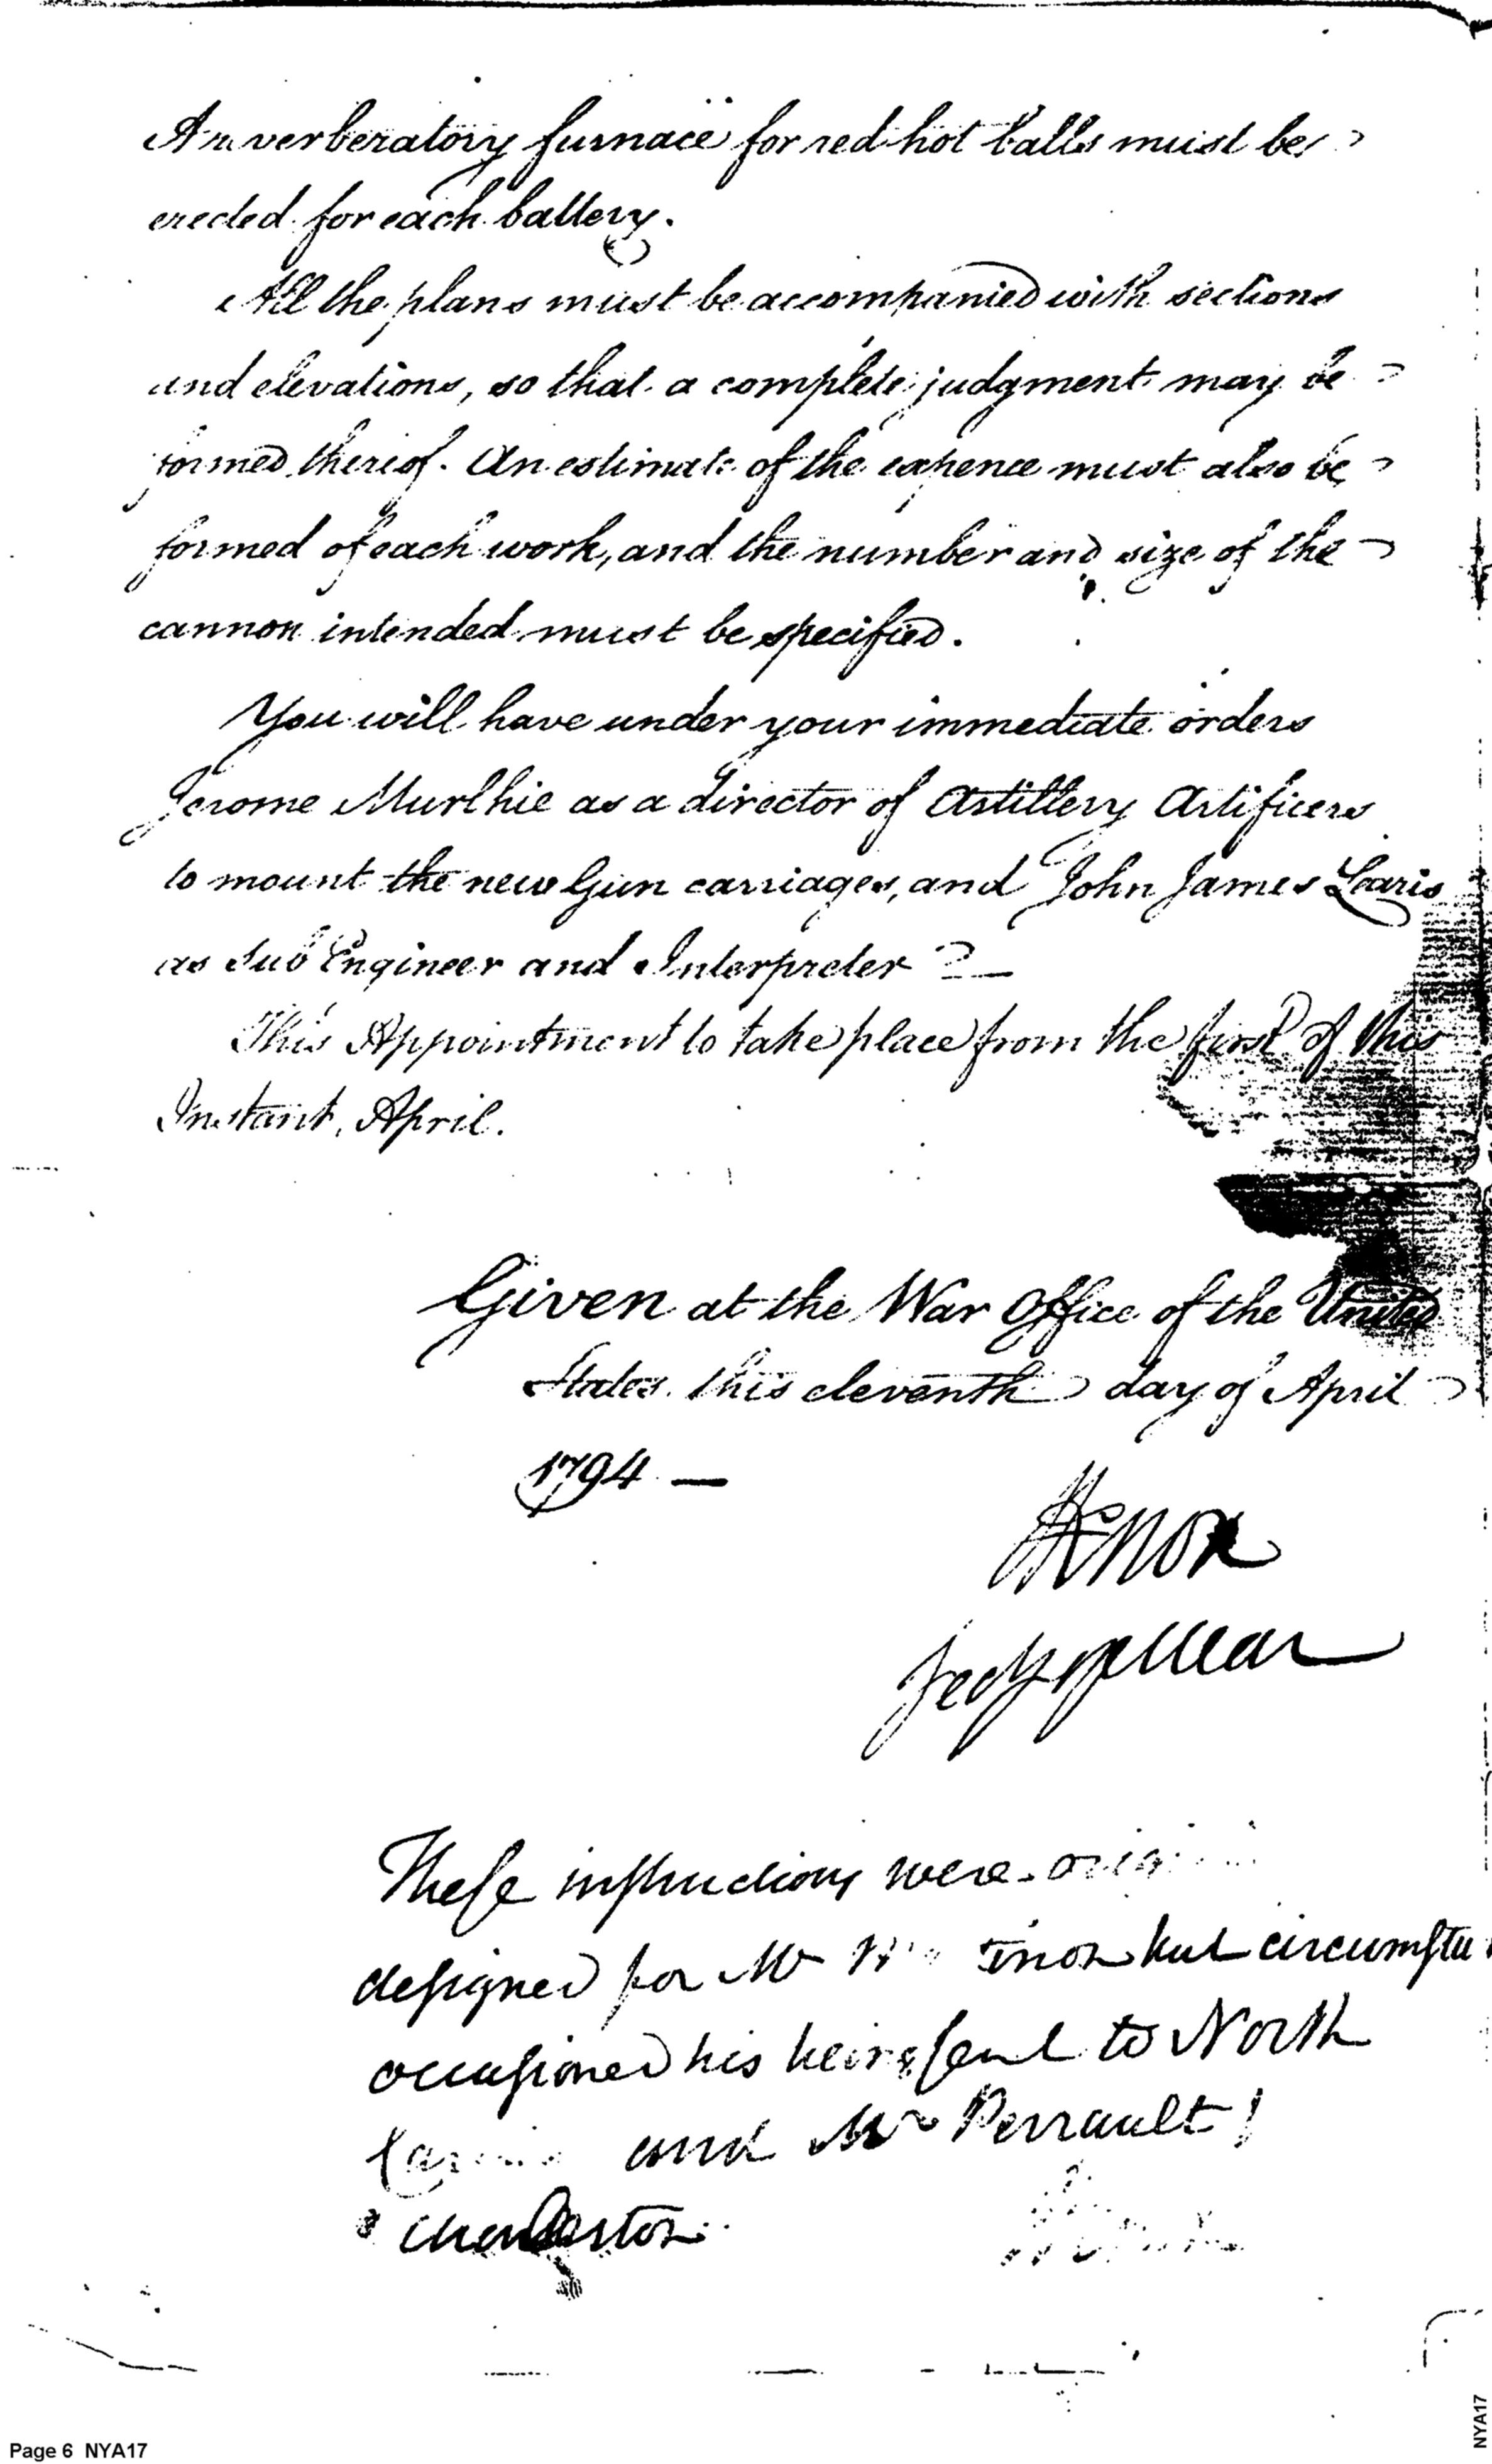 A reverberatory furnace for red-hot balls must be
erected for each battery.
All the plans must be accompanied with sections
and elevations, so that a complete judgment may be
formed thereof. An estimate of the expence must also be
formed of each work, and the number and size of the
cannon intended must be specified.
You will have under your immediate orders
Jerome Murlhie as a director of Artillery Artificers
to mount the new Gun carriages, and John James
as Sub Engineer and Interpreter
This Appointment to take place from the first of this
Instant, April.
Given at the War Office of the United
States this eleventh day of April
1794 —
HKnox
Secy of War
These instructions were
designed for Mr but
occasioned his being sent to North
and Mr Perrault
Charleston
Page 6 NYA17
NYA17